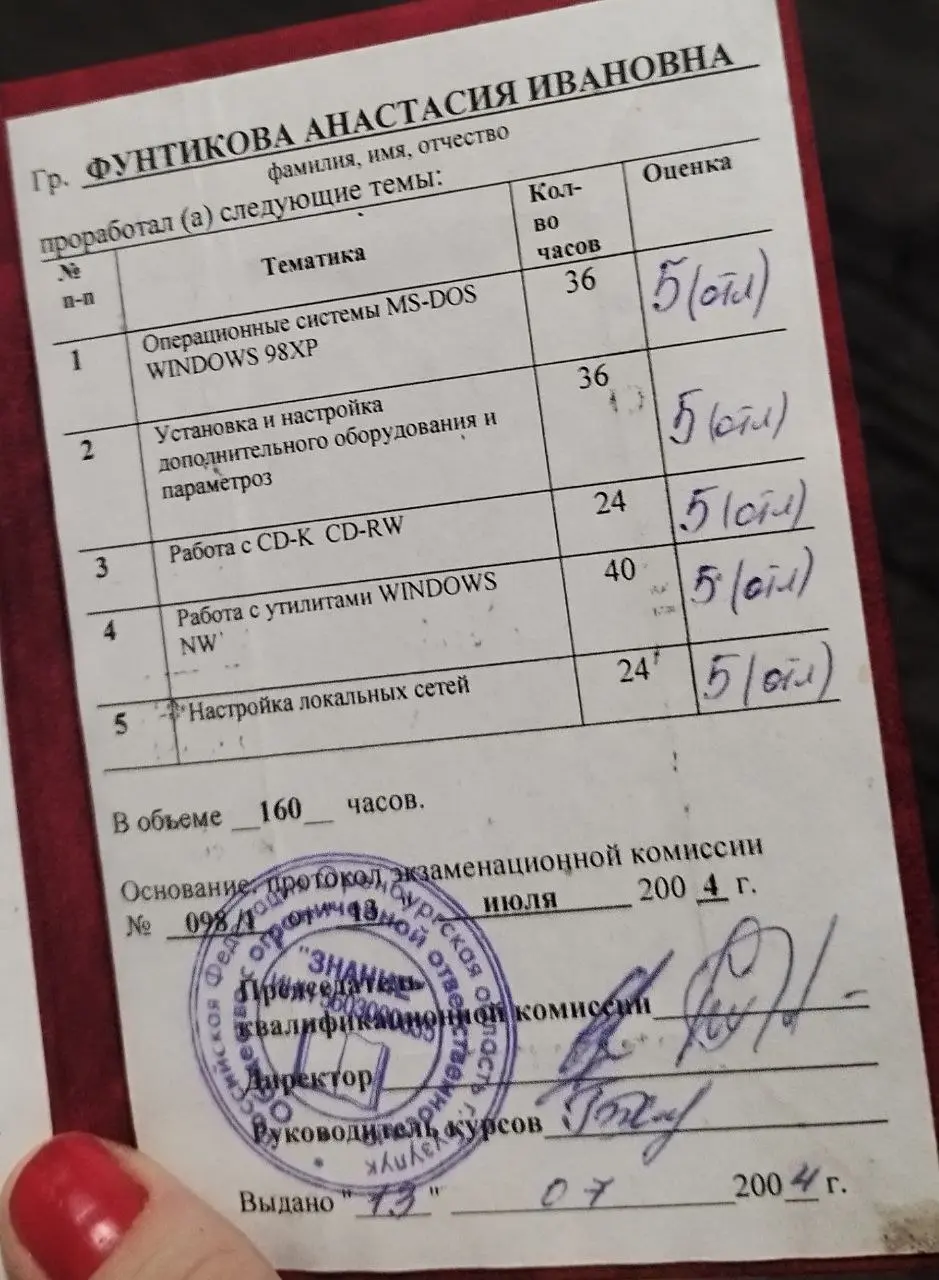 Гр. ФУНТИКОВА АНАСТАСИЯ ИВАНОВНА
фамилия, имя, отчество
проработал (а) следующие темы:
№ п-п Тематика Кол-во часов Оценка
1 Операционные системы MS-DOS WINDOWS 98XP 36 5 (отл)
2 Установка и настройка дополнительного оборудования и параметроз 36 5 (отл)
3 Работа с CD-K CD-RW 24 5 (отл)
4 Работа с утилитами WINDOWS NW 40 5 (отл)
5 Настройка локальных сетей 24 5 (отл)
В объеме 160 часов.
Основание, протокол экзаменационной комиссии
№ 098/1 от 13 июля 2004 г.
Председатель
квалификационной комиссии
Директор
Руководитель курсов
Выдано "13" 07 2004 г.
Российская Федерация Оренбургская область г. Бузулук
Общество с ограниченной ответственностью
"ЗНАНИЕ"